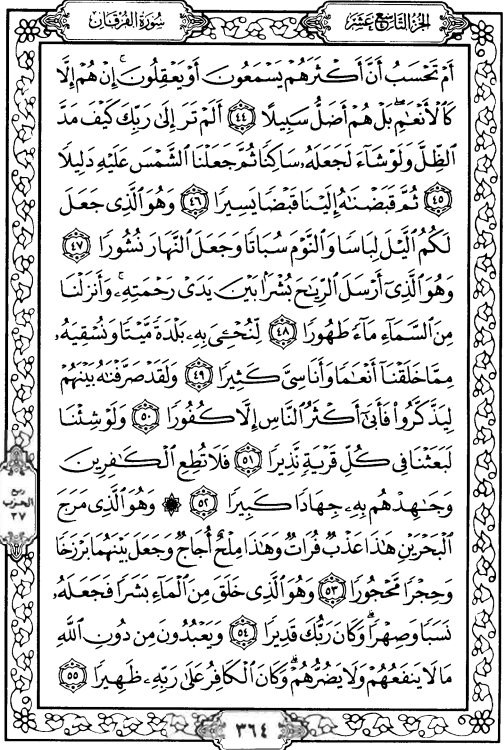 الجزء التاسع عشر
سورة الفرقان
أَمْ تَحْسَبُ أَنَّ أَكْثَرَهُمْ يَسْمَعُونَ أَوْ يَعْقِلُونَ ۚ إِنْ هُمْ إِلَّا
كَالْأَنْعَٰمِ ۖ بَلْ هُمْ أَضَلُّ سَبِيلًا ٤٤ أَلَمْ تَرَ إِلَىٰ رَبِّكَ كَيْفَ مَدَّ
ٱلظِّلَّ وَلَوْ شَآءَ لَجَعَلَهُۥ سَاكِنًا ثُمَّ جَعَلْنَا ٱلشَّمْسَ عَلَيْهِ دَلِيلًا
٤٥ ثُمَّ قَبَضْنَٰهُ إِلَيْنَا قَبْضًا يَسِيرًا ٤٦ وَهُوَ ٱلَّذِى جَعَلَ
لَكُمُ ٱلَّيْلَ لِبَاسًا وَٱلنَّوْمَ سُبَاتًا وَجَعَلَ ٱلنَّهَارَ نُشُورًا ٤٧
وَهُوَ ٱلَّذِىٓ أَرْسَلَ ٱلرِّيَٰحَ بُشْرًۢا بَيْنَ يَدَىْ رَحْمَتِهِۦ ۚ وَأَنزَلْنَا
مِنَ ٱلسَّمَآءِ مَآءً طَهُورًا ٤٨ لِّنُحْـِۧىَ بِهِۦ بَلْدَةً مَّيْتًا وَنُسْقِيَهُۥ
مِمَّا خَلَقْنَآ أَنْعَٰمًا وَأَنَاسِىَّ كَثِيرًا ٤٩ وَلَقَدْ صَرَّفْنَٰهُ بَيْنَهُمْ
لِيَذَّكَّرُوا۟ فَأَبَىٰٓ أَكْثَرُ ٱلنَّاسِ إِلَّا كُفُورًا ٥٠ وَلَوْ شِئْنَا
لَبَعَثْنَا فِى كُلِّ قَرْيَةٍ نَّذِيرًا ٥١ فَلَا تُطِعِ ٱلْكَٰفِرِينَ
وَجَٰهِدْهُم بِهِۦ جِهَادًا كَبِيرًا ٥٢ ۞ وَهُوَ ٱلَّذِى مَرَجَ
ٱلْبَحْرَيْنِ هَٰذَا عَذْبٌ فُرَاتٌ وَهَٰذَا مِلْحٌ أُجَاجٌ وَجَعَلَ بَيْنَهُمَا بَرْزَخًا
وَحِجْرًا مَّحْجُورًا ٥٣ وَهُوَ ٱلَّذِى خَلَقَ مِنَ ٱلْمَآءِ بَشَرًا فَجَعَلَهُۥ
نَسَبًا وَصِهْرًا ۗ وَكَانَ رَبُّكَ قَدِيرًا ٥٤ وَيَعْبُدُونَ مِن دُونِ ٱللَّهِ
مَا لَا يَنفَعُهُمْ وَلَا يَضُرُّهُمْ ۗ وَكَانَ ٱلْكَافِرُ عَلَىٰ رَبِّهِۦ ظَهِيرًا ٥٥
ربع
الحزب
٣٧
٣٦٤